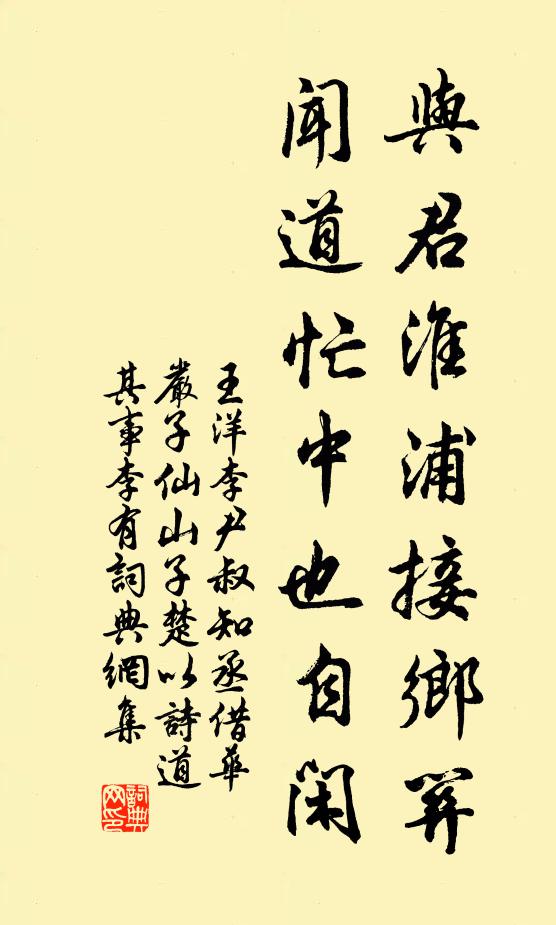 與君淮浦接鄉關
聞道忙中也自閑
王洋李尹叔知丞借華
嚴子仙山子楚以詩道
其事李有詞典網集
詞典
网印